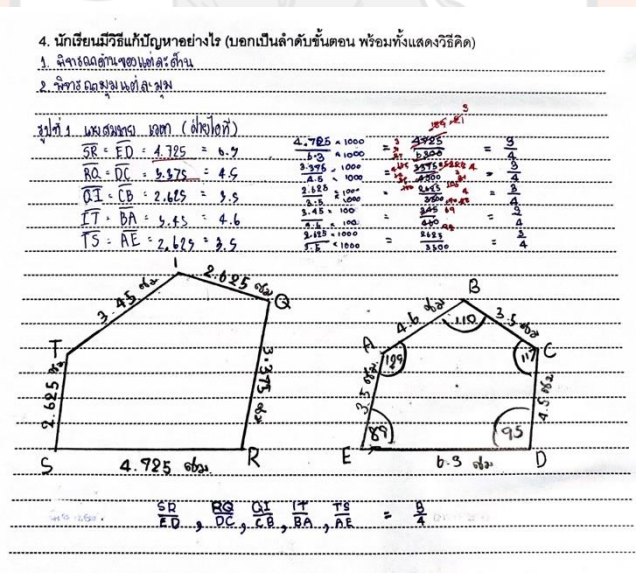 4. นักเรียนมีวิธีแก้ปัญหาอย่างไร (บอกเป็นลำดับขั้นตอน พร้อมทั้งแสดงวิธีคิด)
1. พิจารณาด้านของแต่ละด้าน
2. พิจารณามุมแต่ละมุม
รูปที่ 1
SR : ED = 4.725 : 6.3
RQ : DC = 3.375 : 4.5
QI : CB = 2.625 : 3.5
IT : BA = 3.45 : 4.6
TS : AE = 2.625 : 3.5
4.725 × 1000 / 6.3 × 1000 = 4725 / 6300 = 3/4
3.375 × 1000 / 4.5 × 1000 = 3375 / 4500 = 3/4
2.625 × 1000 / 3.5 × 1000 = 2625 / 3500 = 3/4
3.45 × 100 / 4.6 × 100 = 345 / 460 = 3/4
2.625 × 1000 / 3.5 × 1000 = 2625 / 3500 = 3/4
I
2.625 ซม.
Q
3.45 ซม.
T
3.375 ซม.
2.625 ซม.
S
4.725 ซม.
R
B
4.6 ซม.
110
3.5 ซม.
A
129
117
C
3.5 ซม.
4.5 ซม.
89
95
E
6.3 ซม.
D
SR/ED , RQ/DC , QI/CB , IT/BA , TS/AE = 3/4